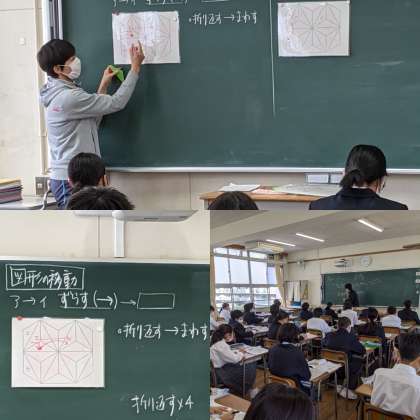 折り返す→まわす
図形の移動
ア→イ ずらす(→)→
折り返す→まわす
折り返す×4